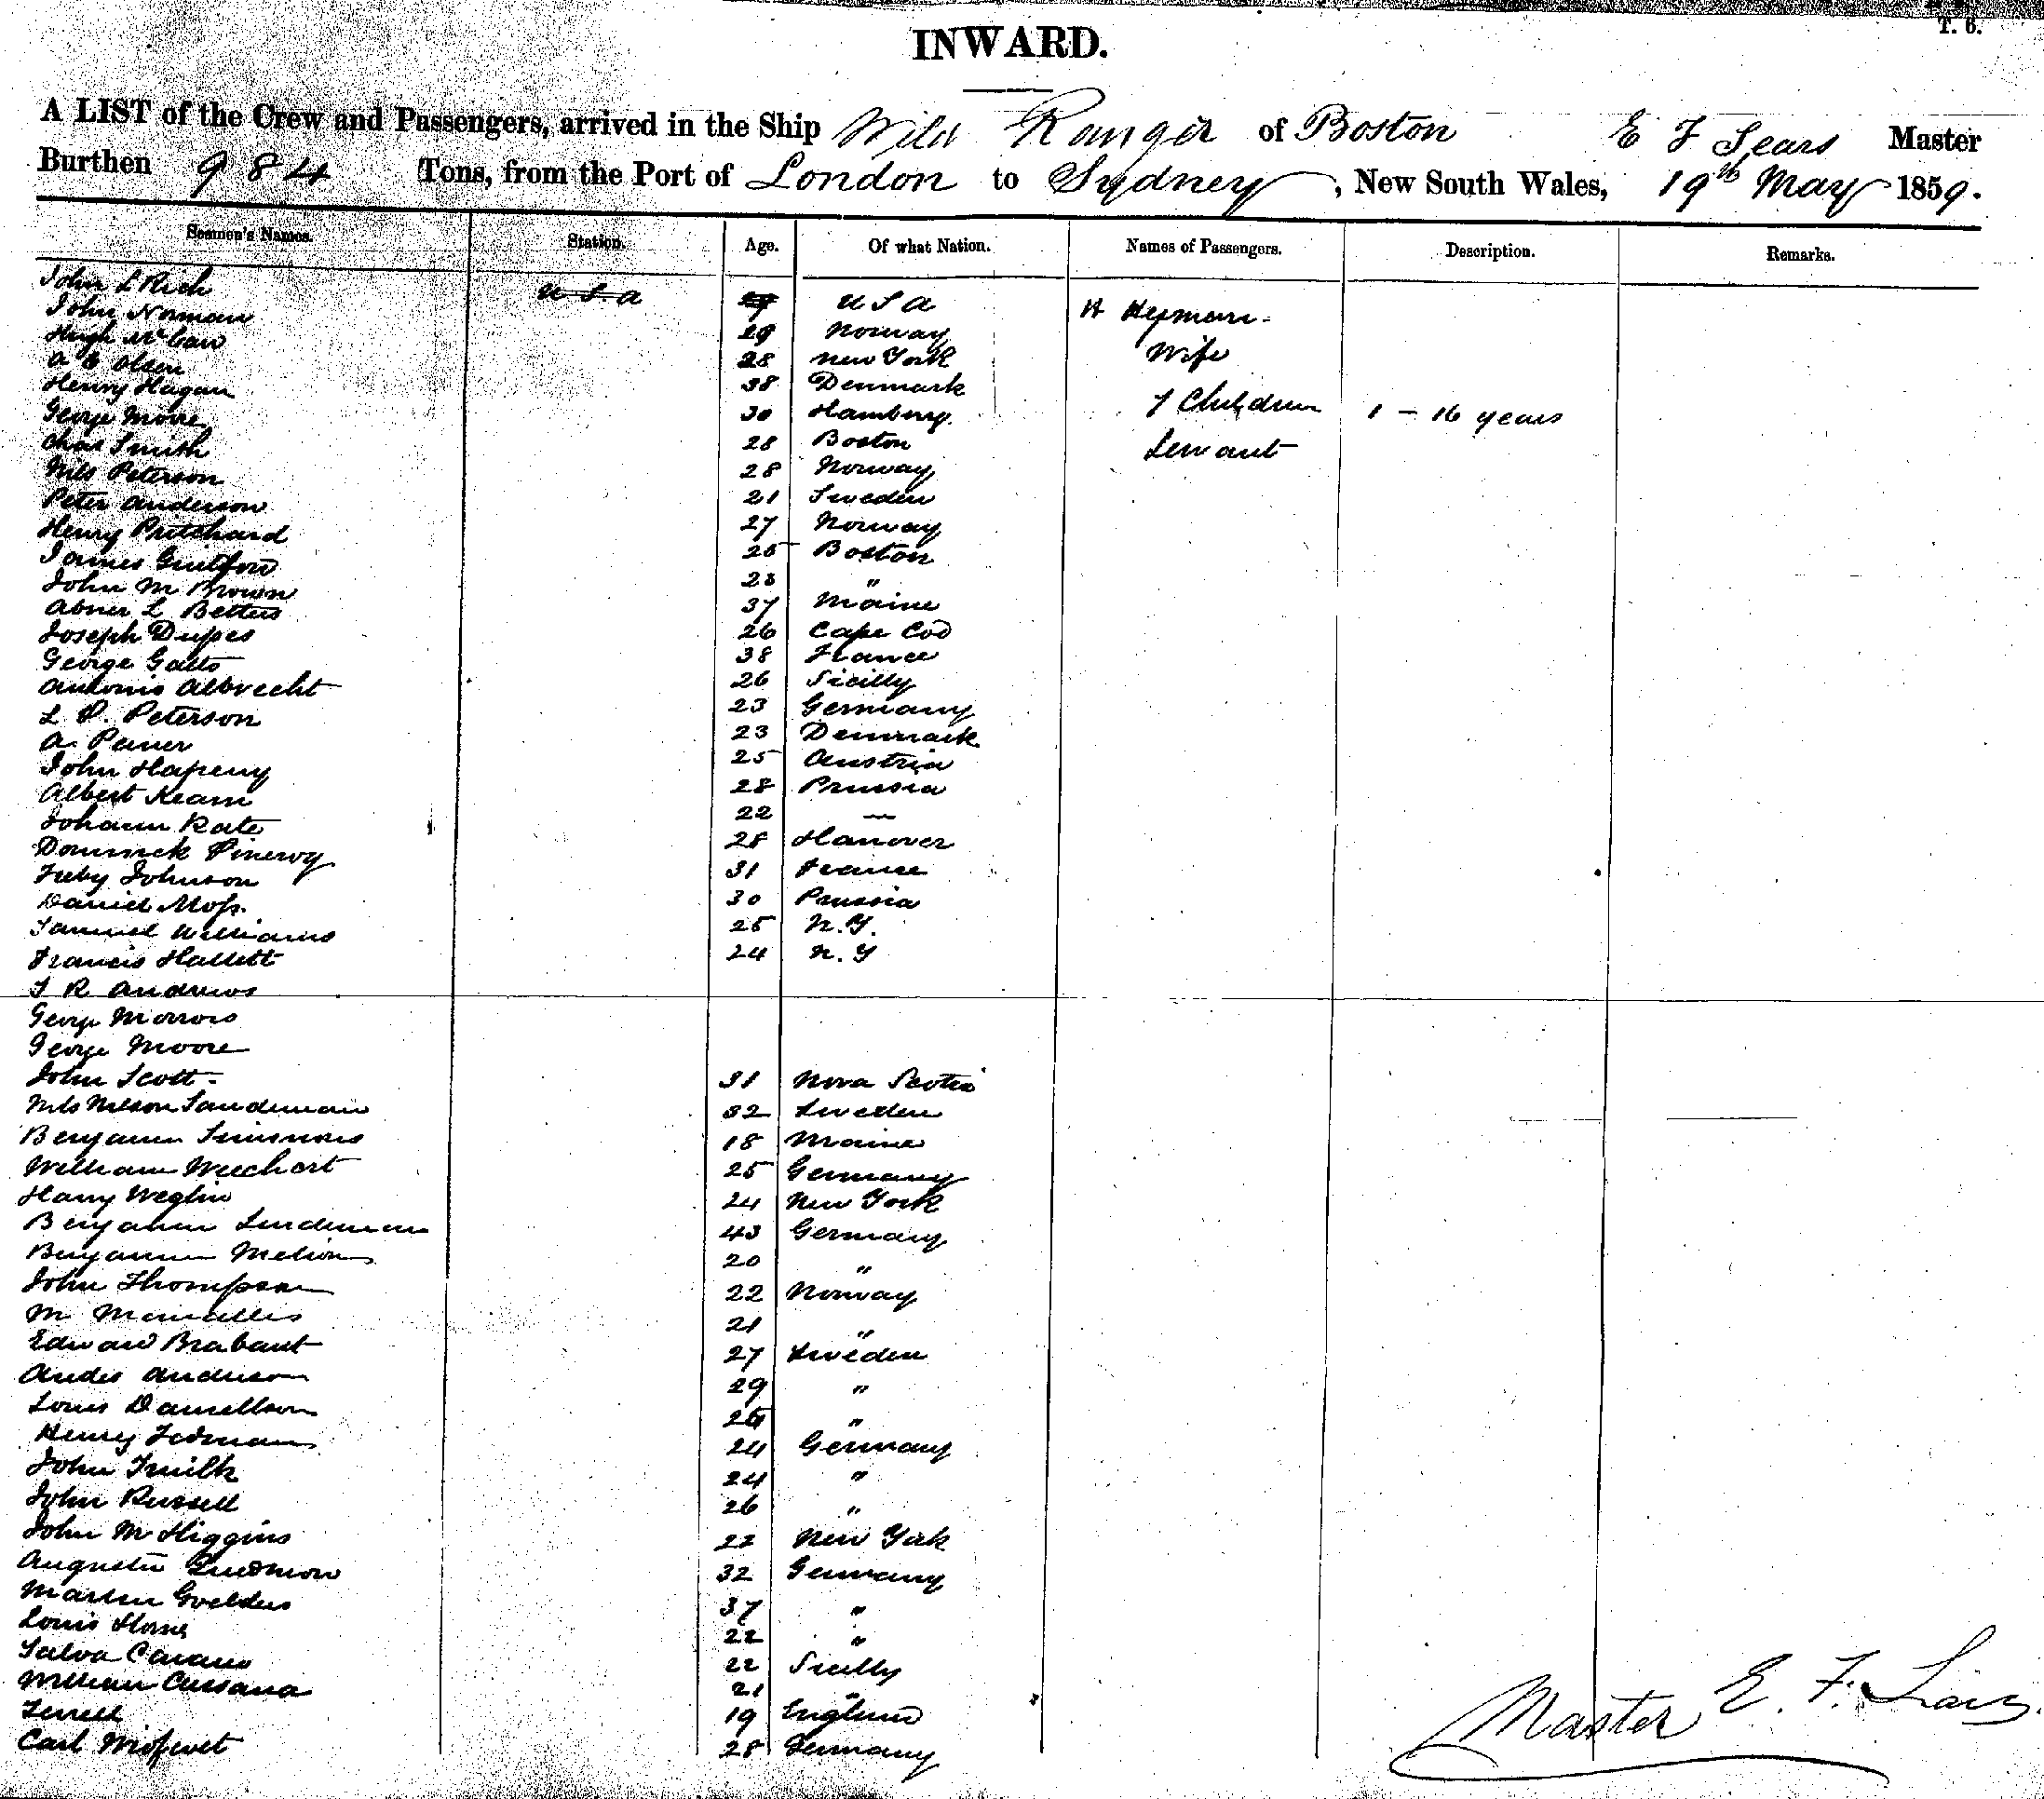 T. 6.
INWARD.
A LIST of the Crew and Passengers, arrived in the Ship Wild Ranger of Boston E F Sears Master
Burthen 984 Tons, from the Port of London to Sydney, New South Wales, 19th May 1859.
Seamen's Names. Station. Age. Of what Nation. Names of Passengers. Description. Remarks.
John L Rich U S A U S A H Hyman
John Norman 29 Norway Wife
Hugh McCaw 28 New York
A E Olsen 38 Denmark 7 Children 1 - 16 years
Henry Hagan 30 Hamburg Servant
George Moore 28 Boston
Chas Smith 28 Norway
Nils Peterson 21 Sweden
Peter Anderson 27 Norway
Henry Pritchard 25 Boston
James Guilford 23 "
John M Brown 37 Maine
Abner L Betters 26 Cape Cod
Joseph Dupes 38 France
George Gatto 26 Sicilly
Antonio Albrecht 23 Germany
L P. Peterson 23 Denmark
A. Pener 25 Austria
John Hapeny 28 Prussia
Albert Kearn 22 —
Johann Rate 28 Hanover
Dominick Pinervy 31 France
Freby Johnson 30 Prussia
Daniel Moss 25 N.Y.
Samuel Williams 24 N.Y
Francis Hallett
J R Andrews
George Morrois
George Moore
John Scott 31 Nova Scotia
Nils Nelson Sandeman 32 Sweden
Benjamin Simmons 18 Maine
William Weechert 25 Germany
Harry Weglin 24 New York
Benjamin Lindeman 43 Germany
Benjamin 20 "
John Thompson 22 Norway
M 21 "
Edward Brabant 27 Sweden
Andes Anderson 29 "
Louis Danellson "
Henry Fedman 24 Germany
John 24 "
John Russell 26 "
John M Higgins 22 New York
Augustu 32 Germany
Martin Goelders 37 "
Louis Horne 22 "
Salva Cavano 22 Sicilly
William Cussana 21 "
Terrell 19 England
Carl 28 Germany
Master E. F. Sears